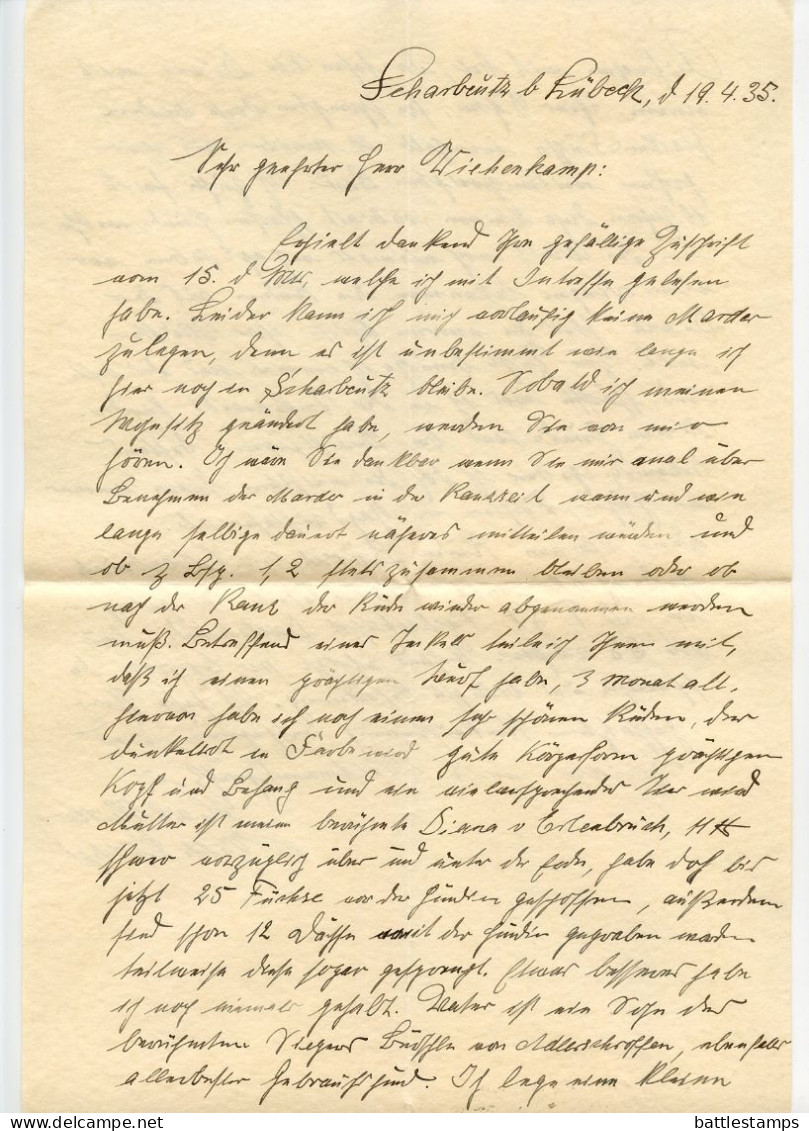 Scharbeutz b Lübeck, d 19.4.35.
Sehr geehrter Herr Wiehenkamp:
Erhielt dankend Ihre gefällige Zuschrift
vom 15. d Mts, welche ich mit Intresse gelesen
habe. Leider kann ich mich vorläufig keine Marder
zulegen, denn es ist unbestimmt wie lange ich
hier noch in Scharbeutz bleibe. Sobald ich meinen
Wohnsitz geändert habe, werden Sie von mir
hören. Ich wäre Sie dankbar wenn Sie mir mal über
Benehmen der Marder in der Ranzzeit wann und wie
lange selbige dauert näheres mitteilen würden und
ob z Bsp. 1,2 stets zusammen bleiben oder ob
nach der Ranz der Rüde wieder abgenommen werden
muß. Betreffend eines Teckels teile ich Ihnen mit,
daß ich einen prächtigen Wurf habe, 3 Monat alt,
hiervon habe ich noch einen sehr schönen Rüden, der
dunkelrot in Farbe wird gute Körperform prächtigen
Kopf und Behang und ein vielversprechender wird
Mutter ist meine berühmte Diana v Erlenbruch, 11 ℔
schwer vorzüglich über und unter der Erde, habe doch bis
jetzt 25 Füchse vor der Hündin geschossen, außerdem
sind schon 12 Dächse mit der Hündin gegraben worden
teilweise diese sogar gesprengt. Etwas besseres habe
ich noch niemals gehabt. Vater ist ein Sohn des
berühmten Siegers von Adlerschroffen, ebenfalls
allerbester Gebrauchshund. Ich lege eine kleine
battlestamps